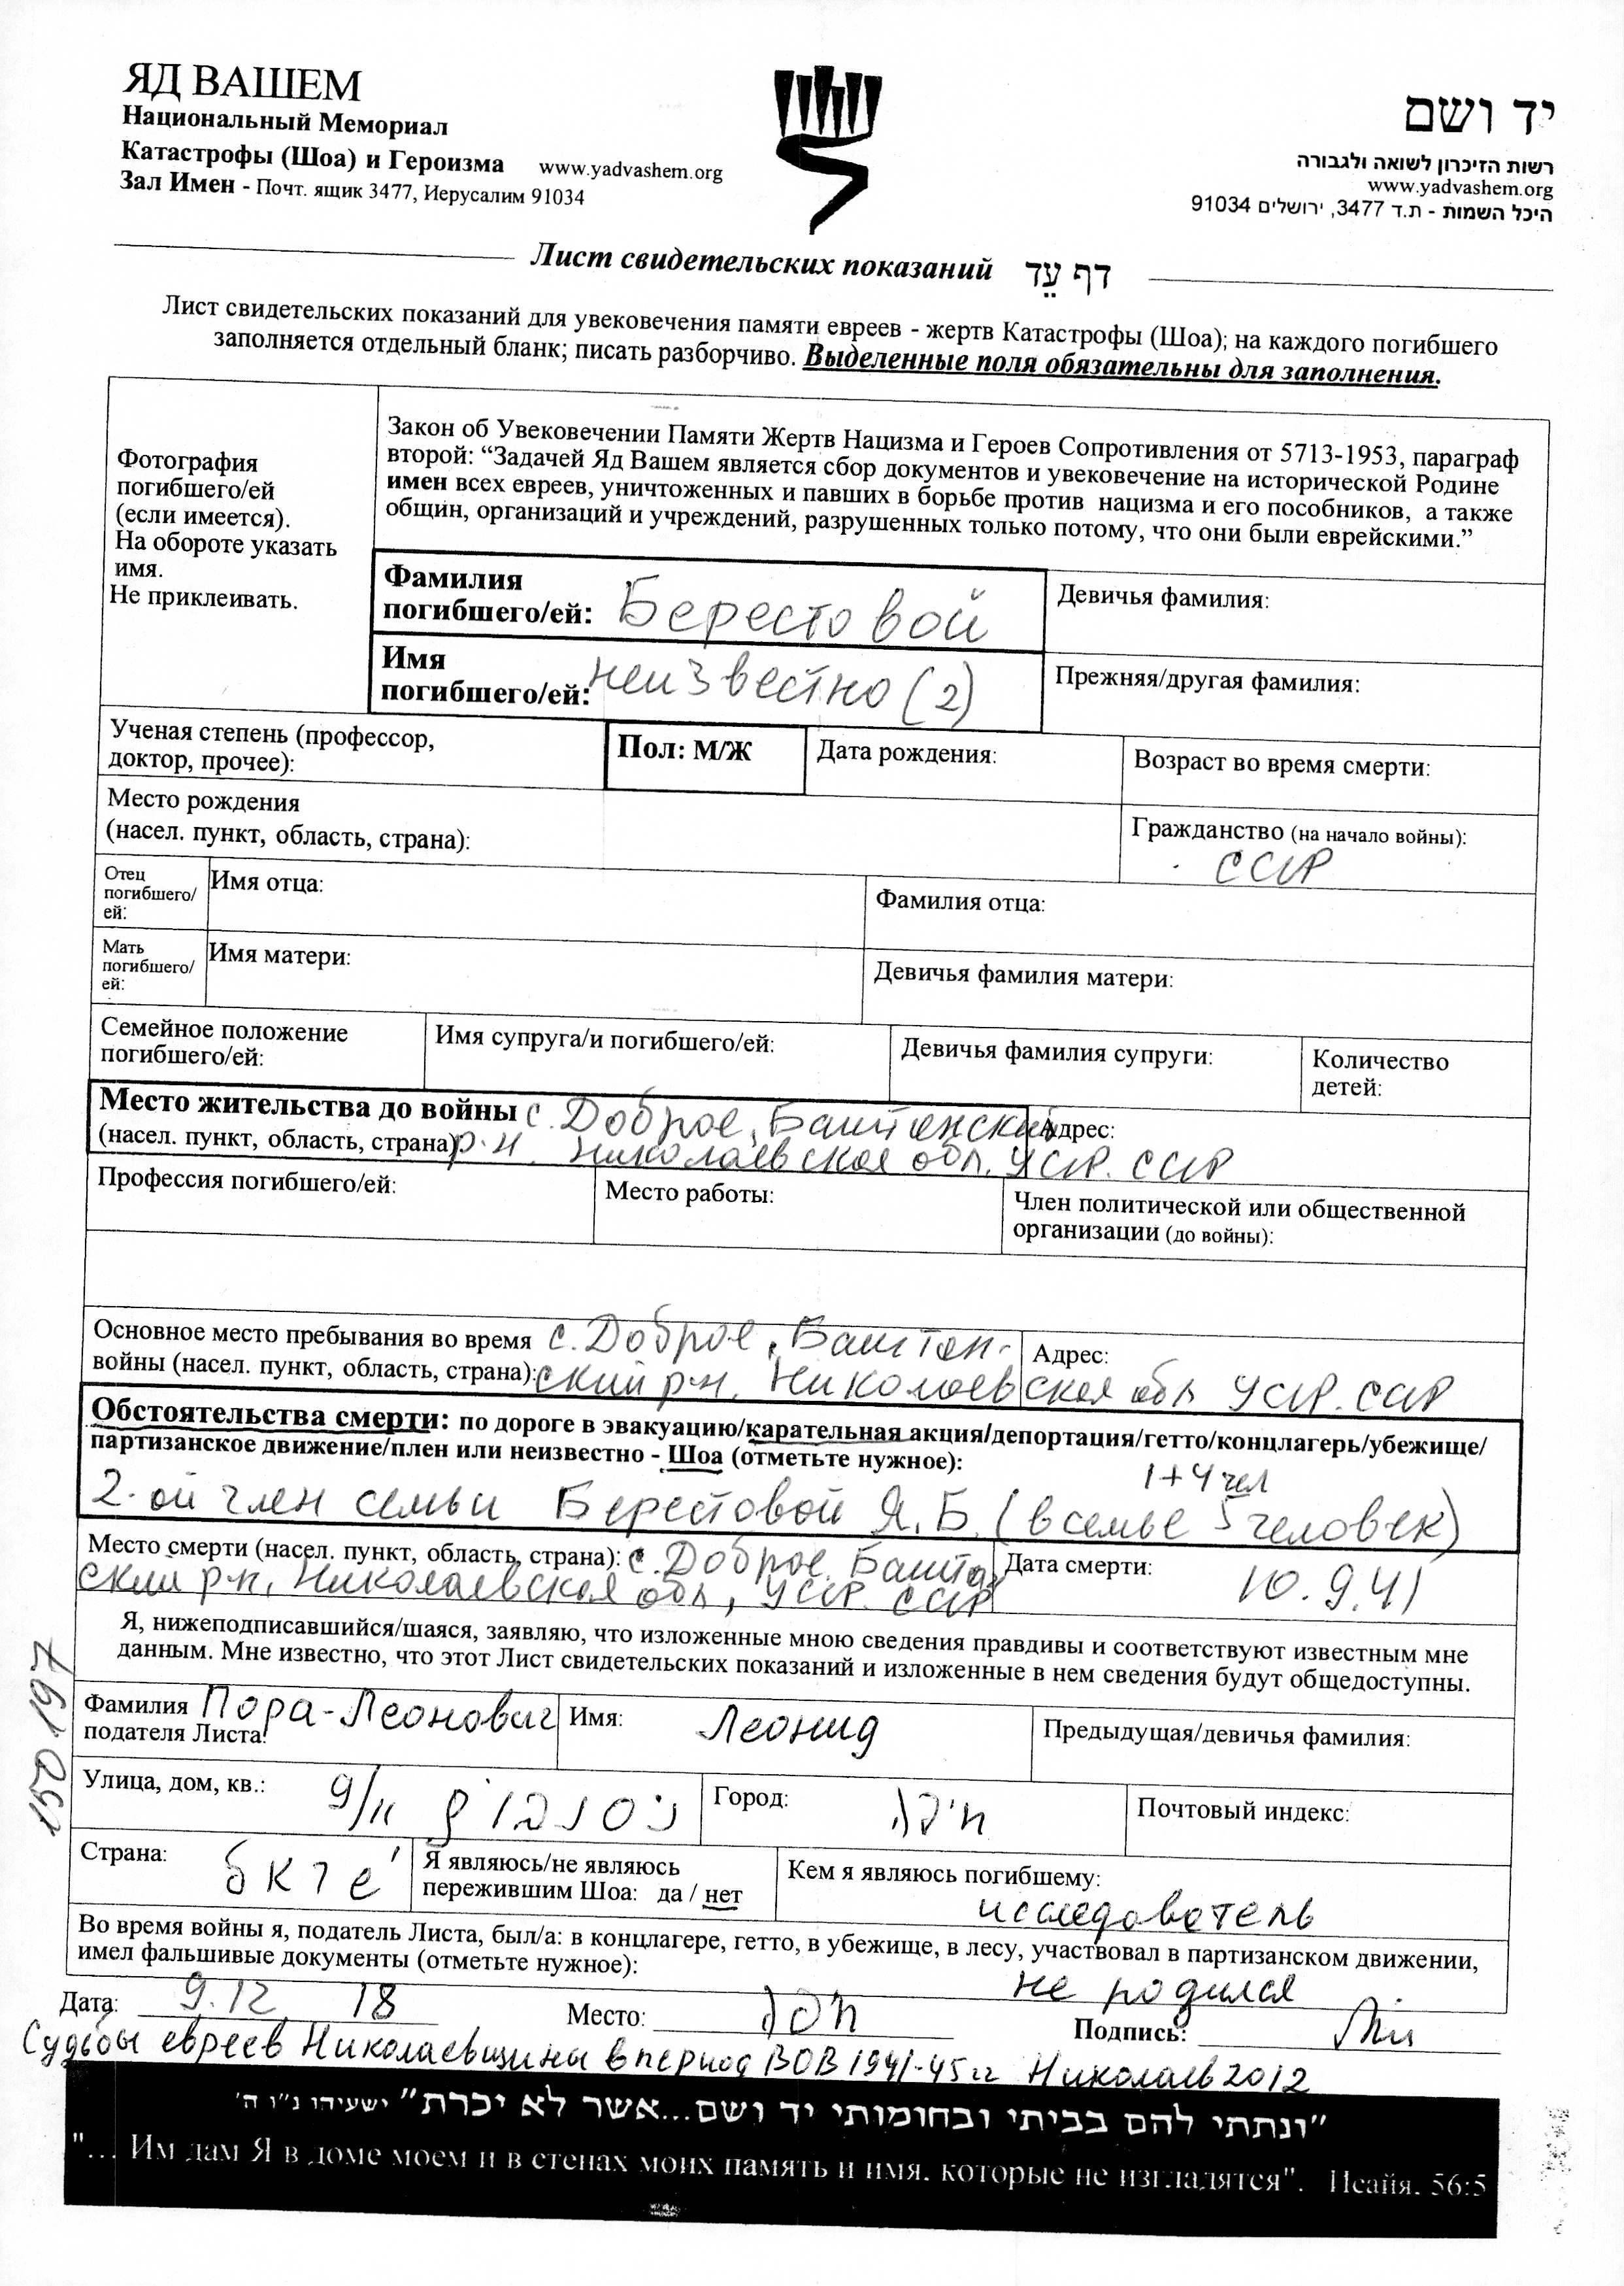 ЯД ВАШЕМ
Национальный Мемориал
Катастрофы (Шоа) и Героизма www.yadvashem.org
Зал Имен - Почт. ящик 3477, Иерусалим 91034
יד ושם
רשות הזיכרון לשואה ולגבורה
www.yadvashem.org
היכל השמות - ת.ד 3477, ירושלים 91034
Лист свидетельских показаний דף עֵד
Лист свидетельских показаний для увековечения памяти евреев - жертв Катастрофы (Шоа); на каждого погибшего
заполняется отдельный бланк; писать разборчиво. Выделенные поля обязательны для заполнения.
Фотография
погибшего/ей
(если имеется).
На обороте указать
имя.
Не приклеивать.
Закон об Увековечении Памяти Жертв Нацизма и Героев Сопротивления от 5713-1953, параграф
второй: “Задачей Яд Вашем является сбор документов и увековечение на исторической Родине
имен всех евреев, уничтоженных и павших в борьбе против нацизма и его пособников, а также
общин, организаций и учреждений, разрушенных только потому, что они были еврейскими.”
Фамилия
погибшего/ей: Берестовой
Девичья фамилия:
Имя
погибшего/ей: неизвестно (2)
Прежняя/другая фамилия:
Ученая степень (профессор,
доктор, прочее):
Пол: М/Ж
Дата рождения:
Возраст во время смерти:
Место рождения
(насел. пункт, область, страна):
Гражданство (на начало войны):
СССР
Отец
погибшего/
ей:
Имя отца:
Фамилия отца:
Мать
погибшего/
ей:
Имя матери:
Девичья фамилия матери:
Семейное положение
погибшего/ей:
Имя супруга/и погибшего/ей:
Девичья фамилия супруги:
Количество
детей:
Место жительства до войны с. Доброе, Баштанский
(насел. пункт, область, страна) р.н. Николаевская обл. УССР. СССР
Адрес:
Профессия погибшего/ей:
Место работы:
Член политической или общественной
организации (до войны):
Основное место пребывания во время с. Доброе, Баштан-
войны (насел. пункт, область, страна): ский р-н. Николаевская обл УССР. СССР
Адрес:
Обстоятельства смерти: по дороге в эвакуацию/карательная акция/депортация/гетто/концлагерь/убежище/
партизанское движение/плен или неизвестно - Шоа (отметьте нужное):
1+4 чел
2-ой член семьи Берестовой Я.Б. (в семье 5 человек)
Место смерти (насел. пункт, область, страна): с. Доброе. Баштан
ский р-н, Николаевская обл, УССР. СССР
Дата смерти:
10.9.41
Я, нижеподписавшийся/шаяся, заявляю, что изложенные мною сведения правдивы и соответствуют известным мне
данным. Мне известно, что этот Лист свидетельских показаний и изложенные в нем сведения будут общедоступны.
150197
Фамилия Пора-Леонович
подателя Листа:
Имя: Леонид
Предыдущая/девичья фамилия:
Улица, дом, кв.: 9/11
Город: חיפה
Почтовый индекс:
Страна:
Я являюсь/не являюсь
пережившим Шоа: да / нет
Кем я являюсь погибшему:
исследователь
Во время войны я, податель Листа, был/а: в концлагере, гетто, в убежище, в лесу, участвовал в партизанском движении,
имел фальшивые документы (отметьте нужное):
не родился
Дата: 9.12 18 Место: Подпись:
Судьбы евреев Николаевщины в период ВОВ 1941-45 гг Николаев 2012
"ונתתי להם בביתי ובחומותי יד ושם...אשר לא יכרת" ישעיהו נ"ו ה'
"... Им дам Я в доме моем и в стенах моих память и имя. которые не изгладятся". Исайя. 56:5